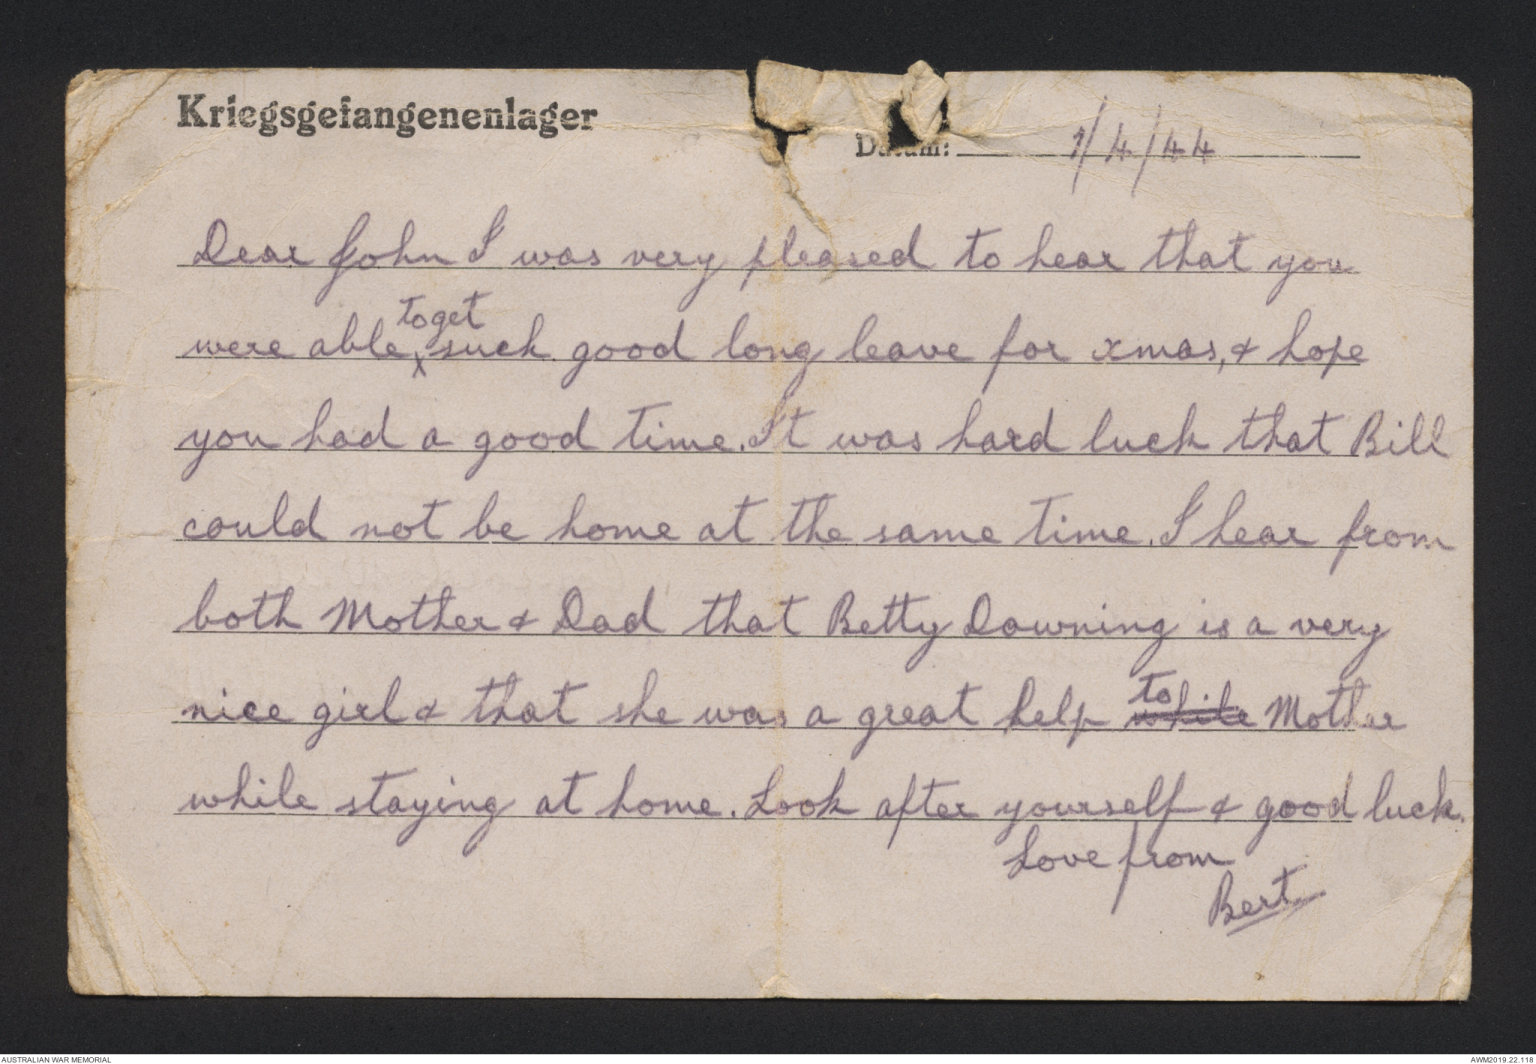 Kriegsgefangenenlager
Datum: 1/4/44
Dear John I was very pleased to hear that you
to get
were able such good long leave for xmas, & hope
you had a good time. It was hard luck that Bill
could not be home at the same time. I hear from
both Mother & Dad that Betty Downing is a very
to
nice girl & that she was a great help while Mother
while staying at home. Look after yourself & good luck.
Love from
Bert
AUSTRALIAN WAR MEMORIAL
AWM2019.22.118